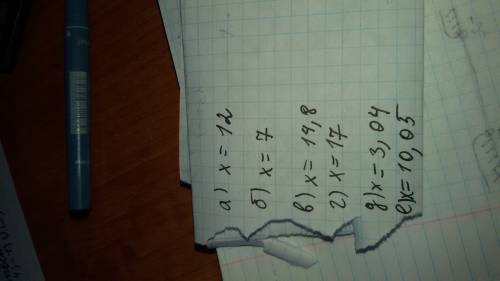 а) x = 12
б) x = 7
в) x = 19,8
г) x = 17
д) x = 3,04
е) x = 10,05